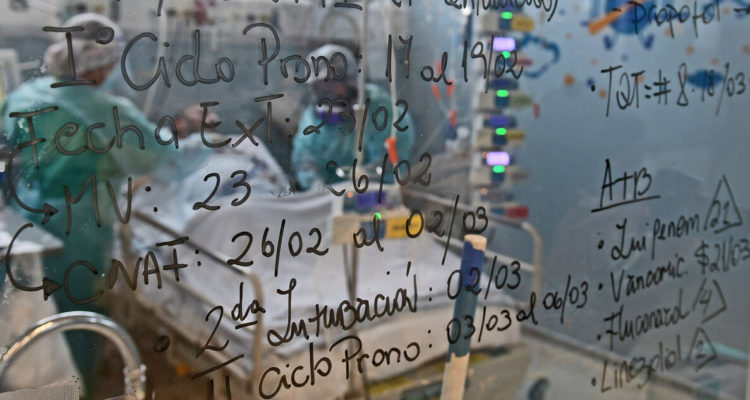 1° Ciclo Prono: 17 al 19/02
Fecha Ext: 23/02
MV: 23 26/02
CNAF: 26/02 al 02/03
2da Intubación: 02/03
II Ciclo Prono: 03/03 al 06/03
Propofol
TQT: # 8. 18/03
ATB
Imipenem 21
Vancomic. 21/03
Fluconazol 4
Linezolid 2